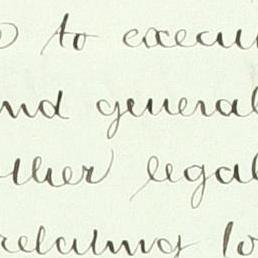 to execu
nd general
ther legal
relating to